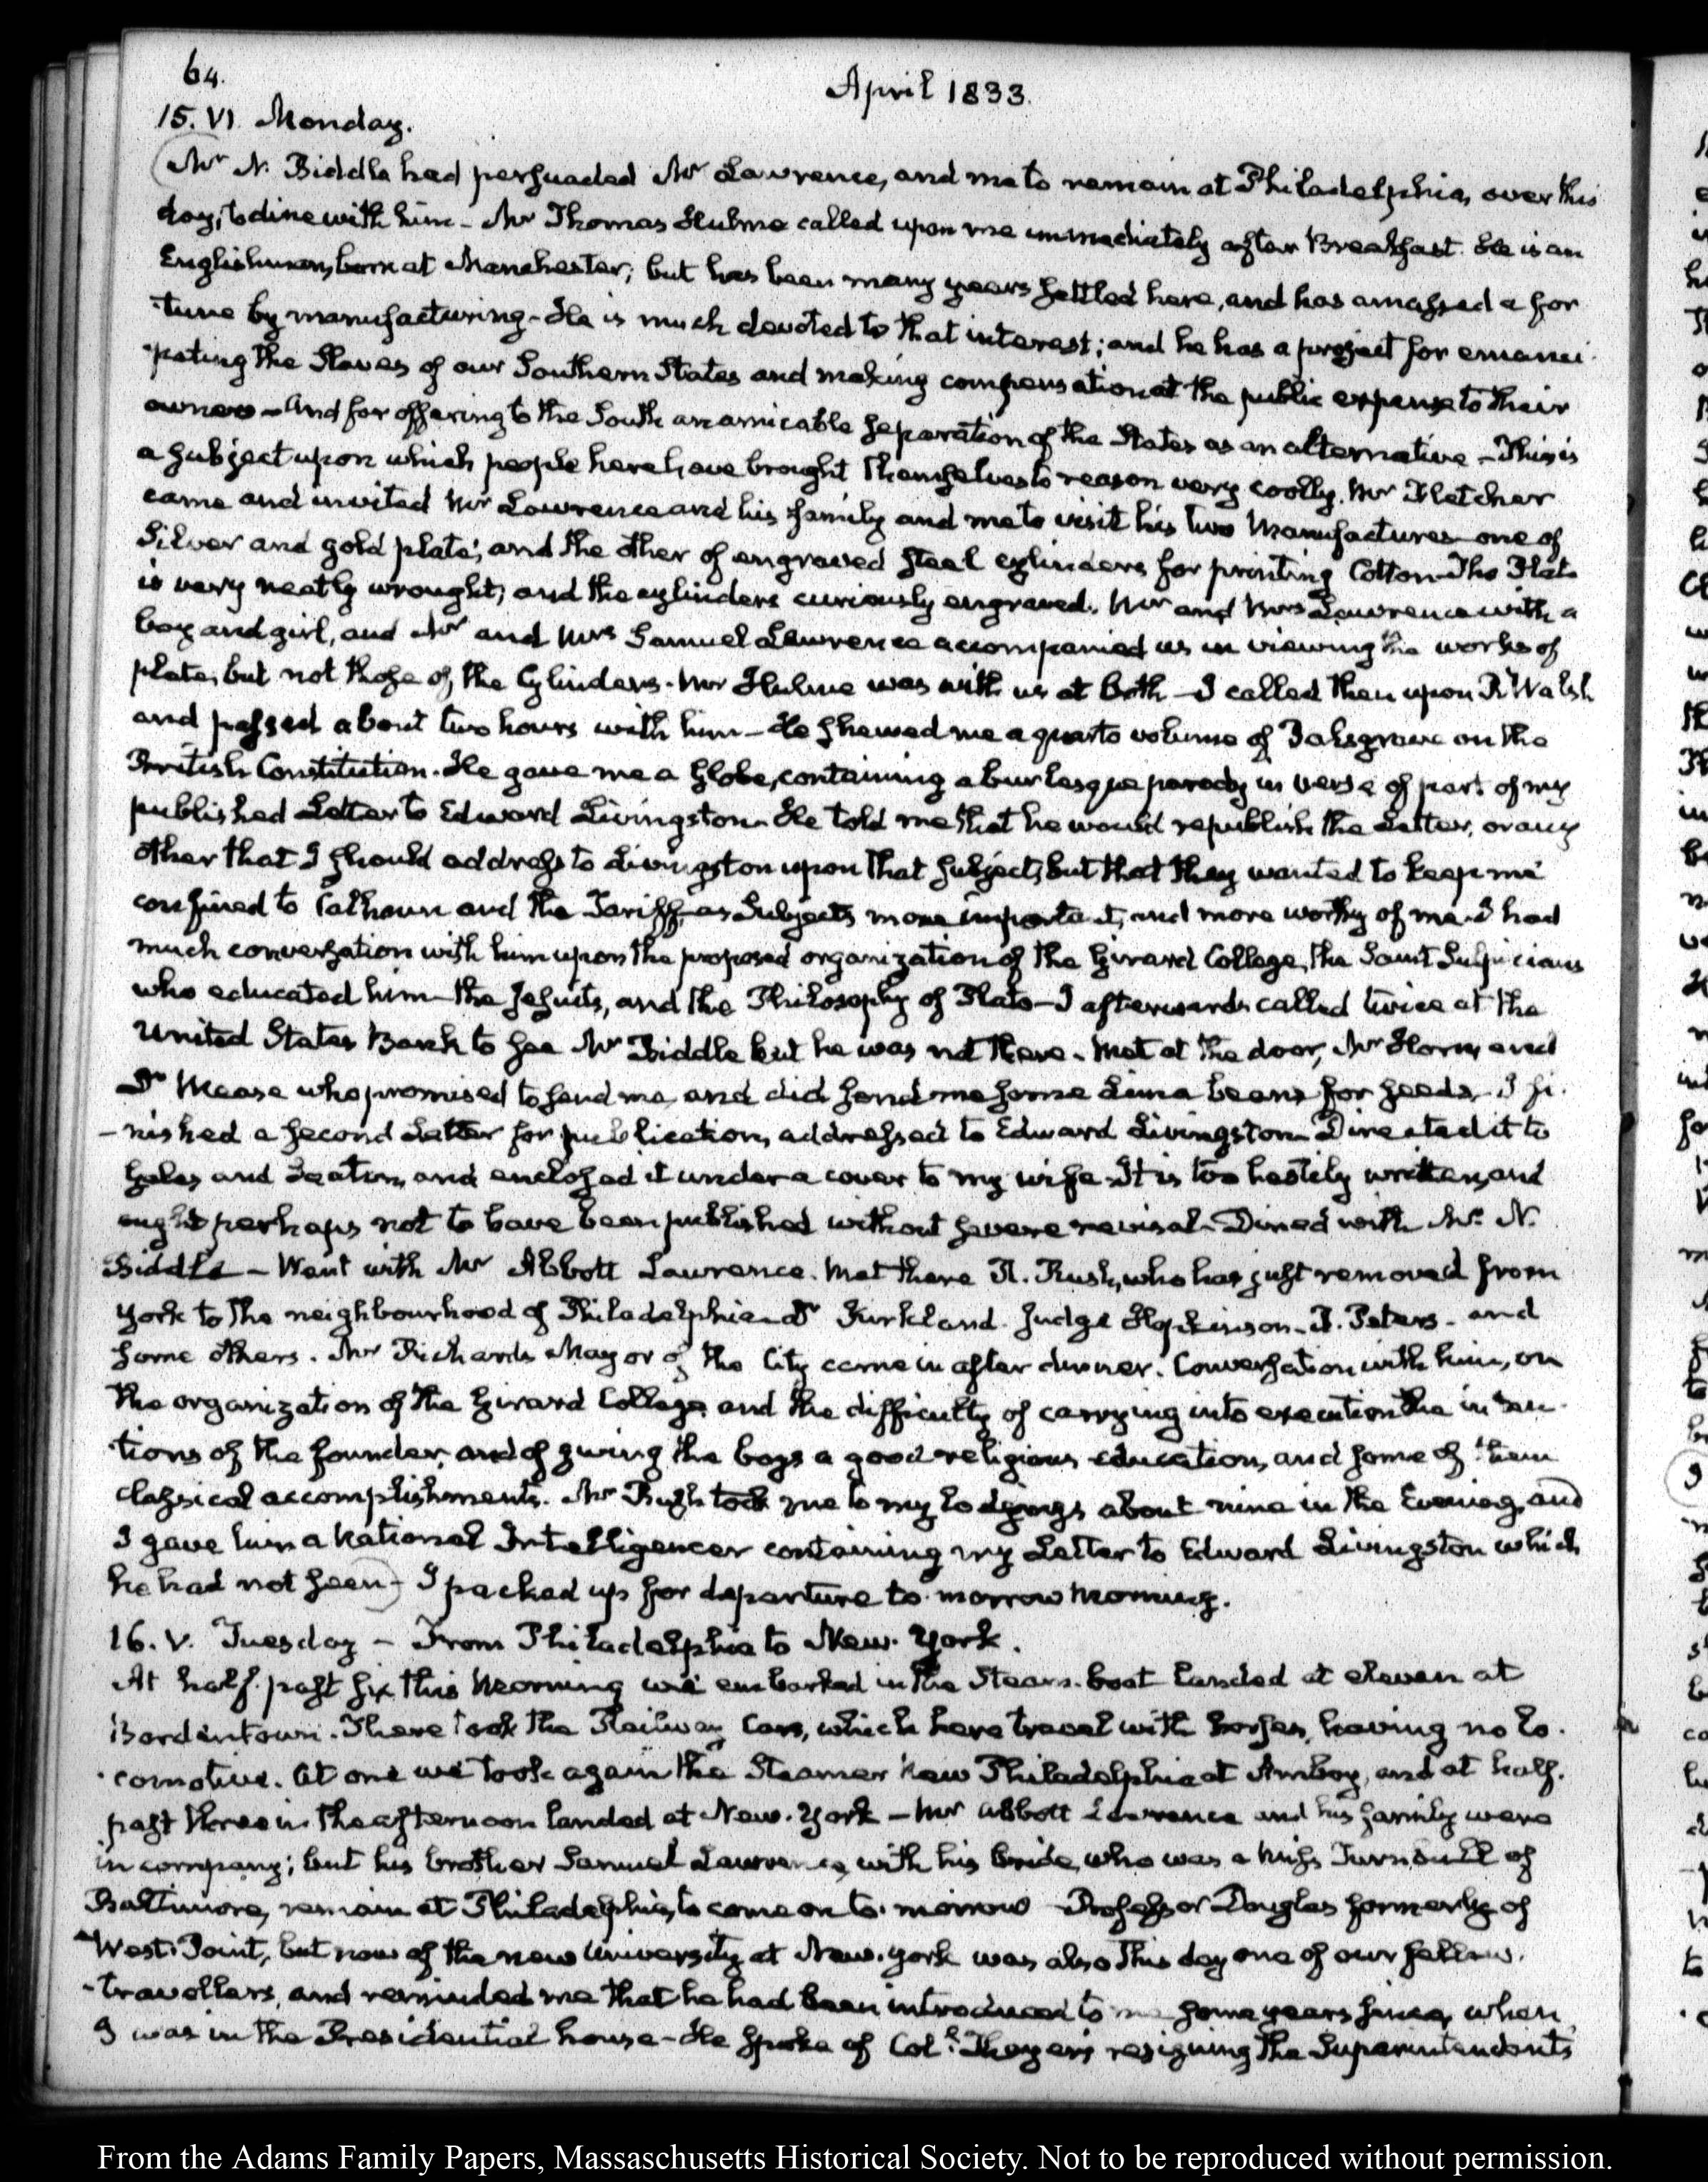 64.
April 1833.
15. VI. Monday.
Mr N. Biddle had persuaded Mr Lawrence, and me to remain at Philadelphia, over this
day, to dine with him - Mr Thomas Hulme called upon me immediately after Breakfast. He is an
Englishman, born at Manchester; but has been many years settled here, and has amassed a for
-tune by manufacturing - He is much devoted to that interest; and he has a project for emanci-
-pating the Slaves of our Southern States and making compensation at the public expense to their
owners - And for offering to the South an amicable separation of the States as an alternative - This is
a subject upon which people here have brought themselves to reason very coolly. Mr Fletcher
came and invited Mr Lawrence and his family and me to visit his two Manufactures - one of
Silver and gold plate; and the other of engraved steel cylinders for printing Cotton - The Plate
is very neatly wrought; and the cylinders curiously engraved. Mr and Mrs Lawrence with a
boy and girl, and Mr and Mrs Samuel Lawrence accompanied us in viewing the works of
plate, but not those of the Cylinders - Mr Hulme was with us at both - I called then upon R. Walsh
and passed about two hours with him - He shewed me a quarto volume of Palsgrave on the
British Constitution. He gave me a Globe, containing a burlesque parody in verse of part of my
published Letter to Edward Livingston - He told me that he would republish the Letter, or any
other that I should address to Livingston upon that subject, but that they wanted to keep me
confined to Calhoun and the Tariff, as Subjects more important, and more worthy of me - I had
much conversation with him upon the proposed organization of the Girard College, the Saint Sulpicians
who educated him - the Jesuits, and the Philosophy of Plato - I afterwards called twice at the
United States Bank to see Mr Biddle but he was not there - Met at the door, Mr and
Dr Mease who promised to send me, and did send me some Lima beans for seeds - I fi-
-nished a second Letter for publication, addressed to Edward Livingston - Directed it to
Gales and Seaton, and enclosed it under a cover to my wife - It is too hastily written, and
ought perhaps not to have been published without severe revisal - Dined with Mr N.
Biddle - Went with Mr Abbott Lawrence. Met there R. Rush, who has just removed from
York to the neighbourhood of Philadelphia - Dr Kirkland. Judge Hopkinson - R. Peters - and
some others. Mr Richards Mayor of the City came in after dinner. Conversation with him, on
the organization of the Girard College, and the difficulty of carrying into execution the inten-
-tions of the founder, and of giving the boys a good religious education, and some of them
classical accomplishments. Mr Rush took me to my lodgings about nine in the Evening, and
I gave him a National Intelligencer containing my Letter to Edward Livingston which
he had not seen - I packed up for departure to-morrow Morning.
16. V. Tuesday - From Philadelphia to New-York.
At half past six this Morning we embarked in the Steam-boat landed at eleven at
Bordentown. There took the Railway Cars, which here travel with horses, having no lo-
-comotive. At one we took again the Steamer New Philadelphia at Amboy, and at half-
past three in the afternoon landed at New-York - Mr Abbott Lawrence and his family were
in company; but his brother Samuel Lawrence, with his bride, who was a Miss Turnbull of
Baltimore, remain at Philadelphia, to come on to-morrow - Professor Douglas formerly of
West-Point, but now of the new University at New-York was also this day one of our fellow-
-travellers, and reminded me that he had been introduced to me some years since, when
I was in the Presidential house - He spoke of Coll. Thayer's resigning the Superintendents
From the Adams Family Papers, Massaschusetts Historical Society. Not to be reproduced without permission.